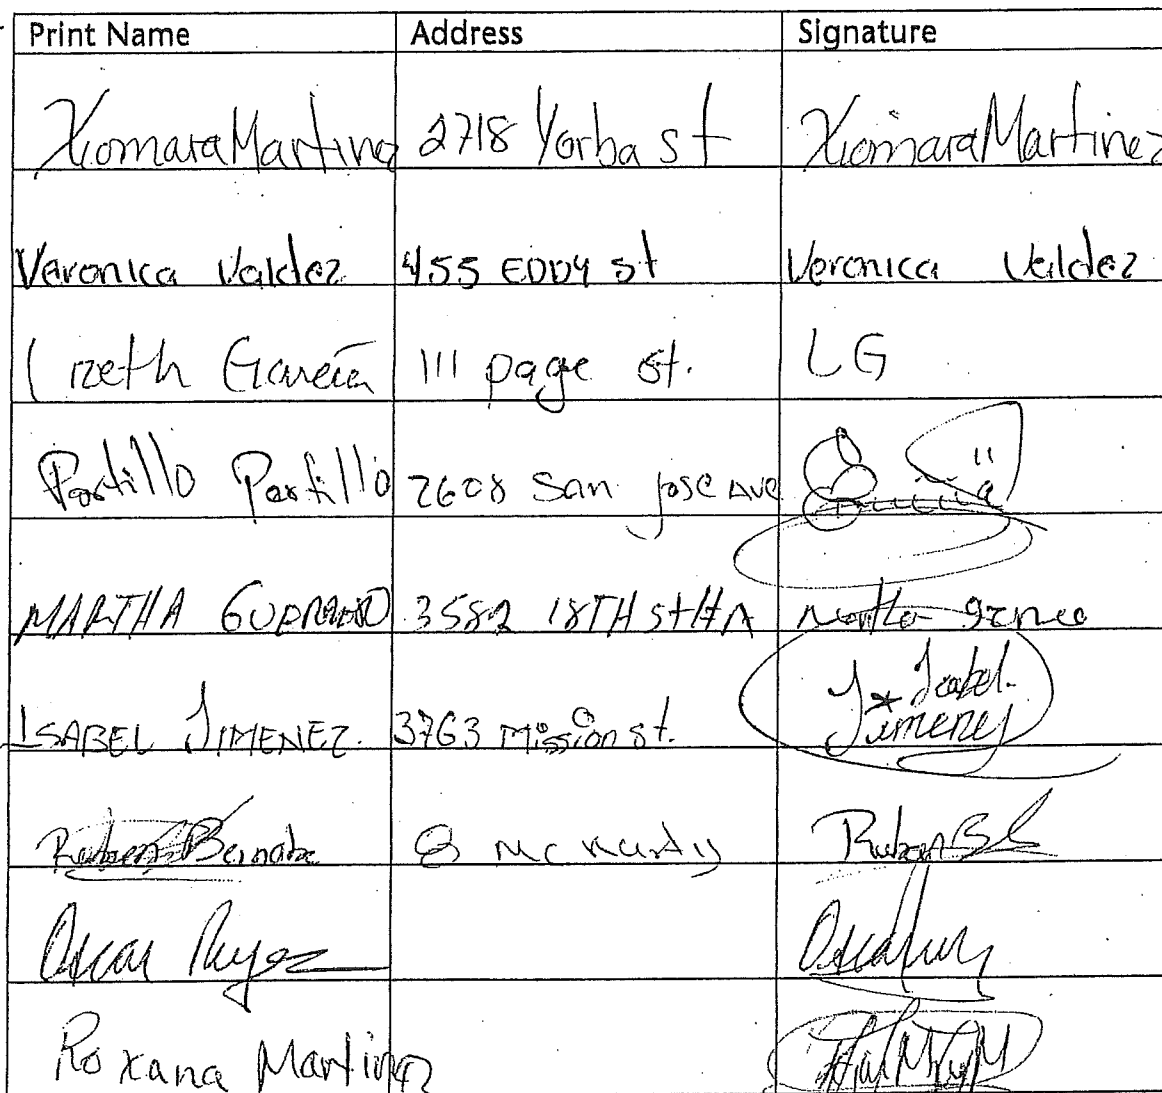 Print Name Address Signature
Xiomara Martinez 2718 Yorba st Xiomara Martinez
Veronica Valdez 455 EDDY st Veronica Valdez
Lizeth García 111 page st. LG
Portillo Portillo 2608 San jose Ave
MARTHA 3582 18TH st #A
ISABEL JIMENEZ. 3763 Mission st. J* Isabel.
Jimenez
Ruben Bernabe 8 Ruben
Oscar Reyes Oscar
Roxana Martinez